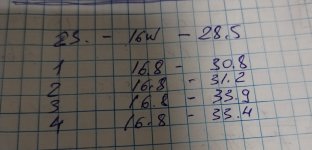 23. - 16W - 28.5
1 16.8 - 30.8
2 16.8 - 31.2
3 16.8 - 33.9
4 16.8 - 33.4